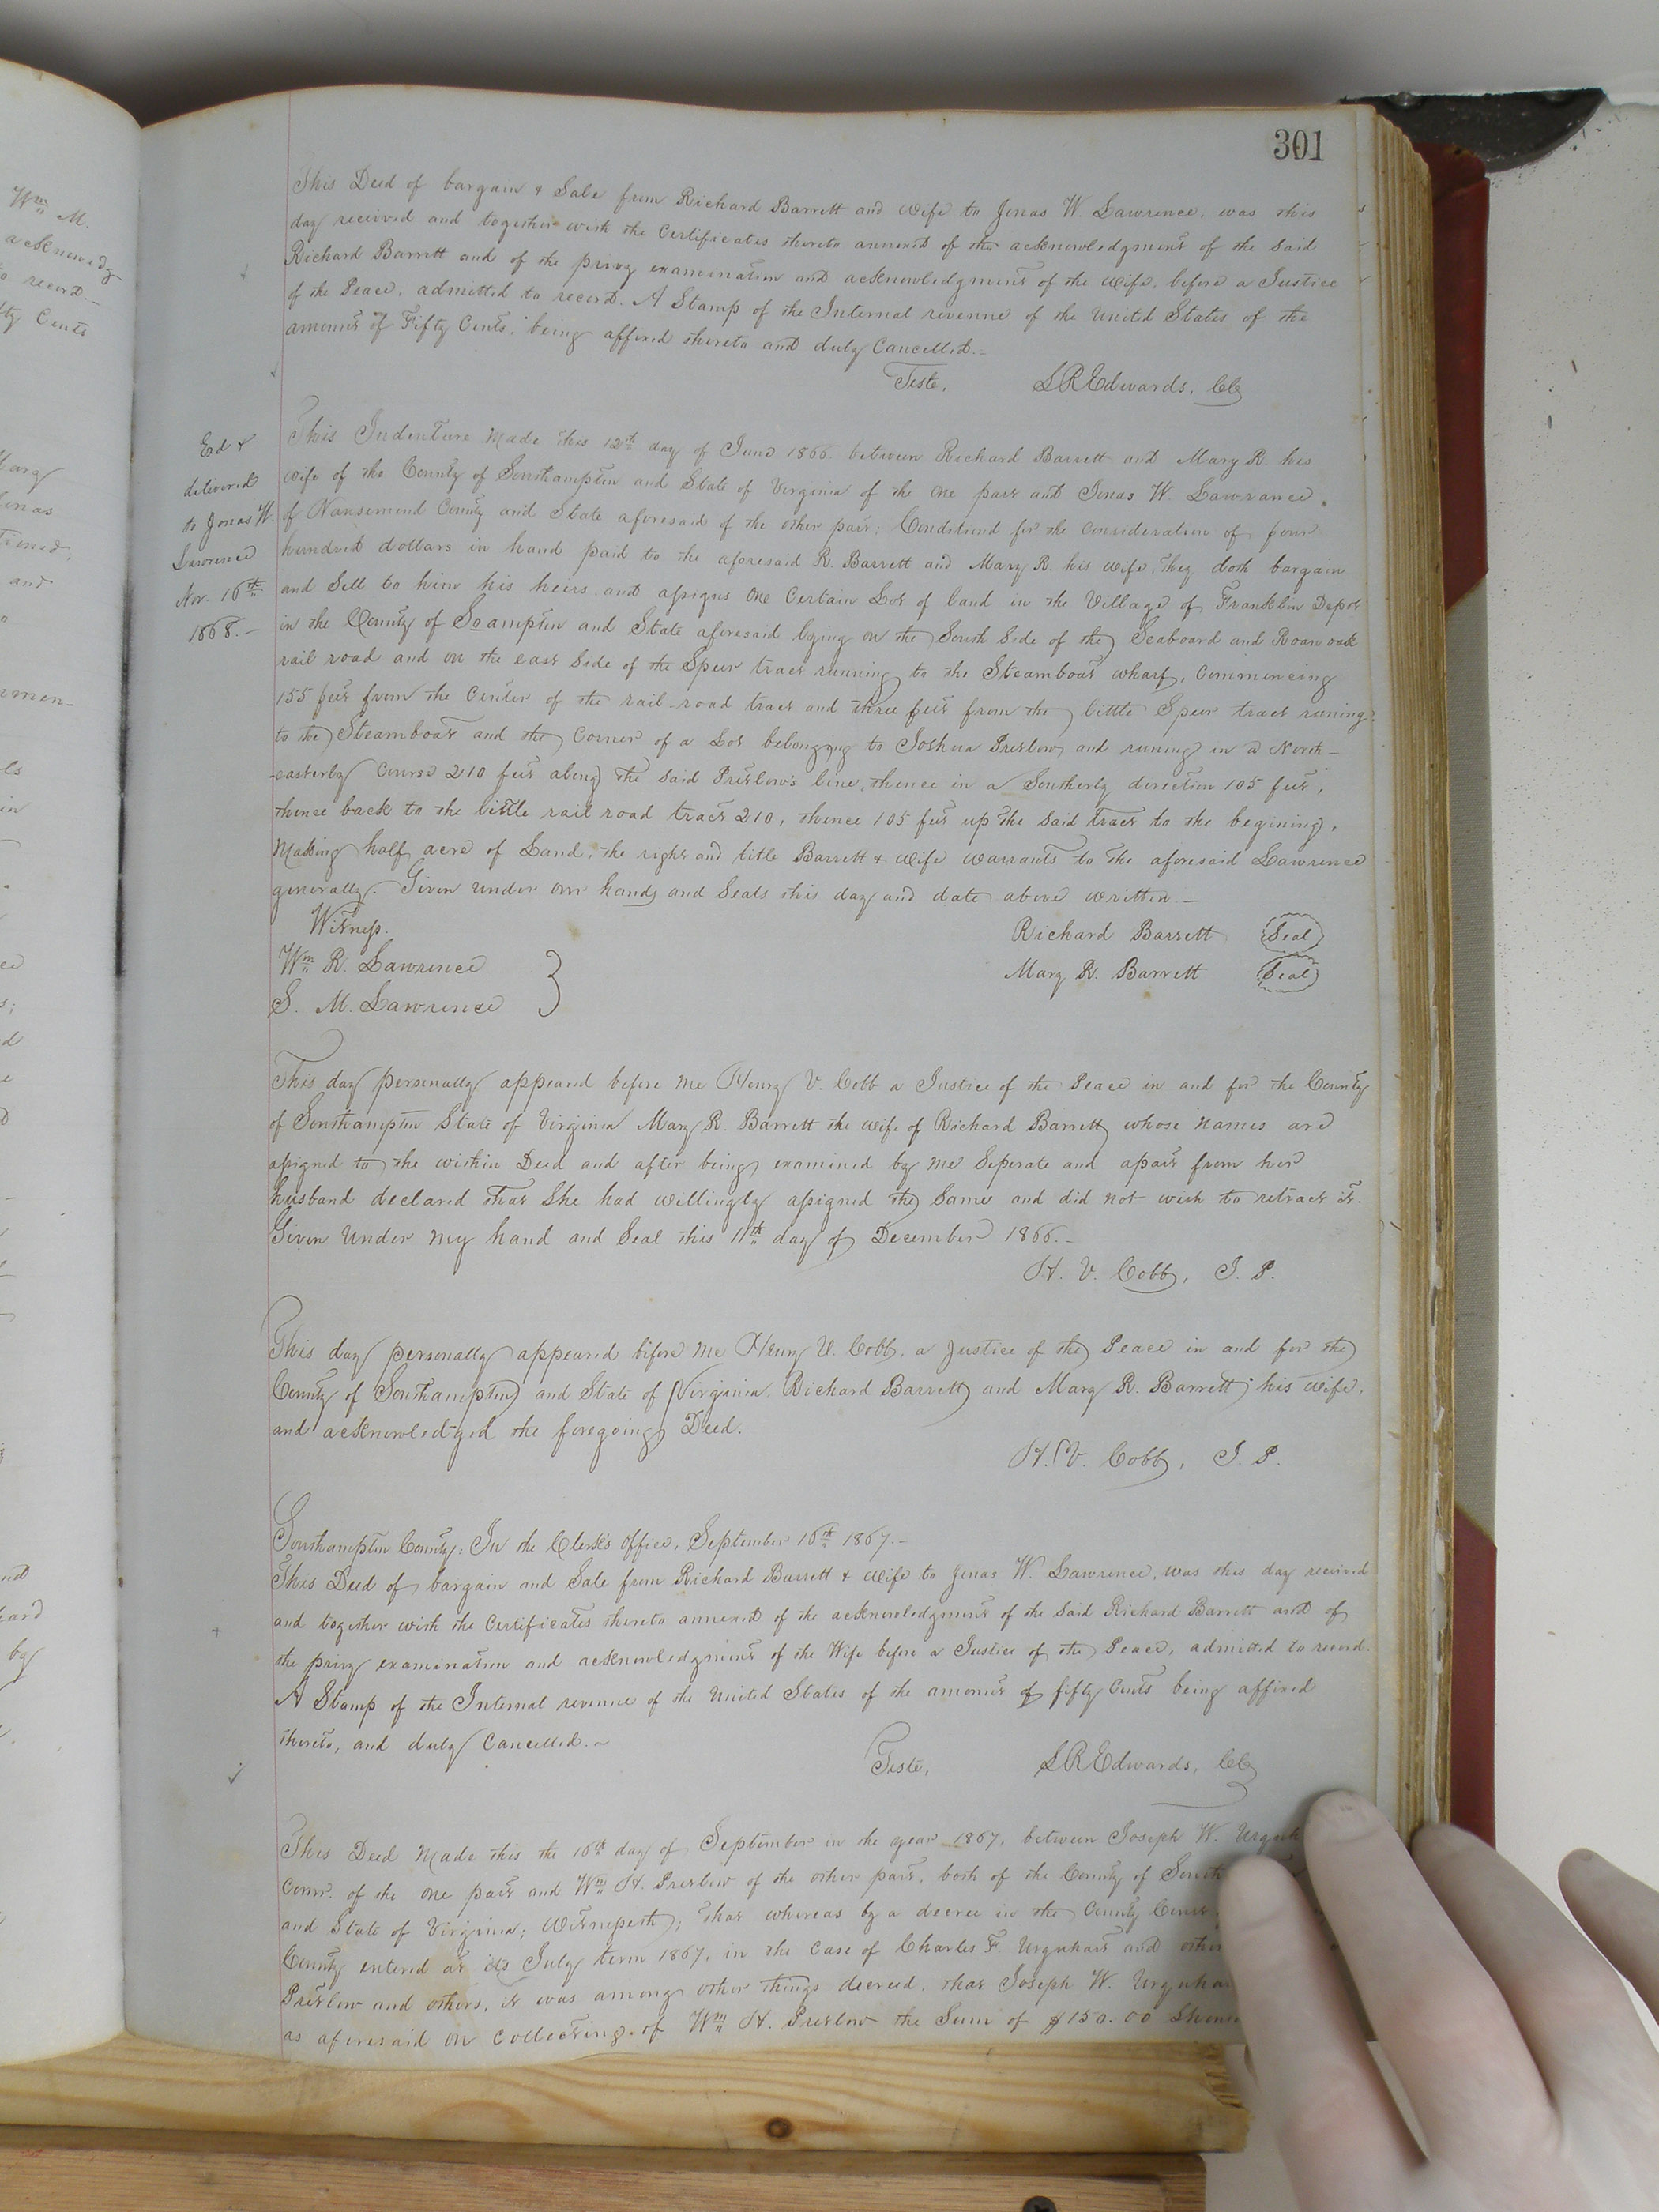 301
Wm M.
acknowledg-
record.-
fty Cents
and
by
This Deed of bargain & Sale from Richard Barrett and wife to Jonas W. Lawrence, was this
day received and together with the Certificates thereto annexed of the acknowledgment of the Said
Richard Barrett and of the privy examination and acknowledgment of the Wife, before a Justice
of the Peace, admitted to record. A Stamp of the Internal revenue of the United States of the
amount of Fifty Cents, being affixed thereto and duly Cancelled.-
Teste, S R Edwards, Clk
Exd &
delivered
to Jonas W.
Lawrence
Nov. 16th
1868.-
This Indenture Made this 12th day of June 1866. between Richard Barrett and Mary R. his
wife of the County of Southampton and State of Virginia of the one part and Jonas W. Lawrance.
of Nansemond County and State aforesaid of the other part; Conditiond for the Consideration of four
hundred dollars in hand paid to the aforesaid R. Barrett and Mary R. his wife. They doth bargain
and Sell to him his heirs and assigns One Certain Lot of land in the Village of Franklin Depot
in the County of Soampton and State aforesaid lying on the South Side of the Seaboard and Roanoak
rail road and on the east Side of the Spur tract running to the Steamboat wharf, Commencing
155 feet from the Center of the rail-road tract and three feet from the little Spur tract runing
to the Steamboat and the Corner of a Lot belonging to Joshua Pretlow, and runing in a North-
-easterly Course 210 feet along the said Pretlow's line, thence in a Southerly direction 105 feet,
thence back to the little rail road tract 210, thence 105 feet up the said tract to the begining,
Making half acre of Land, the right and title Barrett & wife warrants to the aforesaid Lawrence
generally. Given under our hands and Seals this day and date above written.-
Witness. Richard Barrett Seal
Wm R. Lawrence Mary R. Barrett Seal
S. M. Lawrence
This day personally appeared before me Henry V. Cobb a Justice of the Peace in and for the County
of Southampton State of Virginia Mary R. Barrett the wife of Richard Barrett whose names are
assigned to the within Deed and after being examined by me Seperate and apart from her
husband declared that She had willingly assigned the Same and did not wish to retract it.
Given Under my hand and Seal this 11th day of December 1866.-
H. V. Cobb, J. P.
This day personally appeared before me Henry V. Cobb, a Justice of the Peace in and for the
County of Southampton and State of Virginia, Richard Barrett and Mary R. Barrett his wife,
and acknowledged the foregoing Deed.
H. V. Cobb, J. P.
Southampton County: In the Clerk's Office, September 16th 1867.-
This Deed of bargain and Sale from Richard Barrett & wife to Jonas W. Lawrence, was this day received
and together with the Certificates thereto annexed of the acknowledgment of the Said Richard Barrett and of
the privy examination and acknowledgment of the Wife before a Justice of the Peace, admitted to record.
A Stamp of the Internal revenue of the United States of the amount of fifty Cents being affixed
thereto, and duly Cancelled.~
Teste, S R Edwards, Clk
This Deed Made this the 16th day of September in the year 1867, between Joseph W. Urquh
Comr. of the one part and Wm H. Pretlow of the other part, both of the County of South
and State of Virginia; Witnesseth; that whereas by a decree in the County Court
County entered at its July term 1867, in the case of Charles F. Urquhart and other
Pretlow and others, it was among other things decreed, that Joseph W. Urquhar
as aforesaid on Collecting of Wm H. Pretlow the Sum of $150.00 Shoul